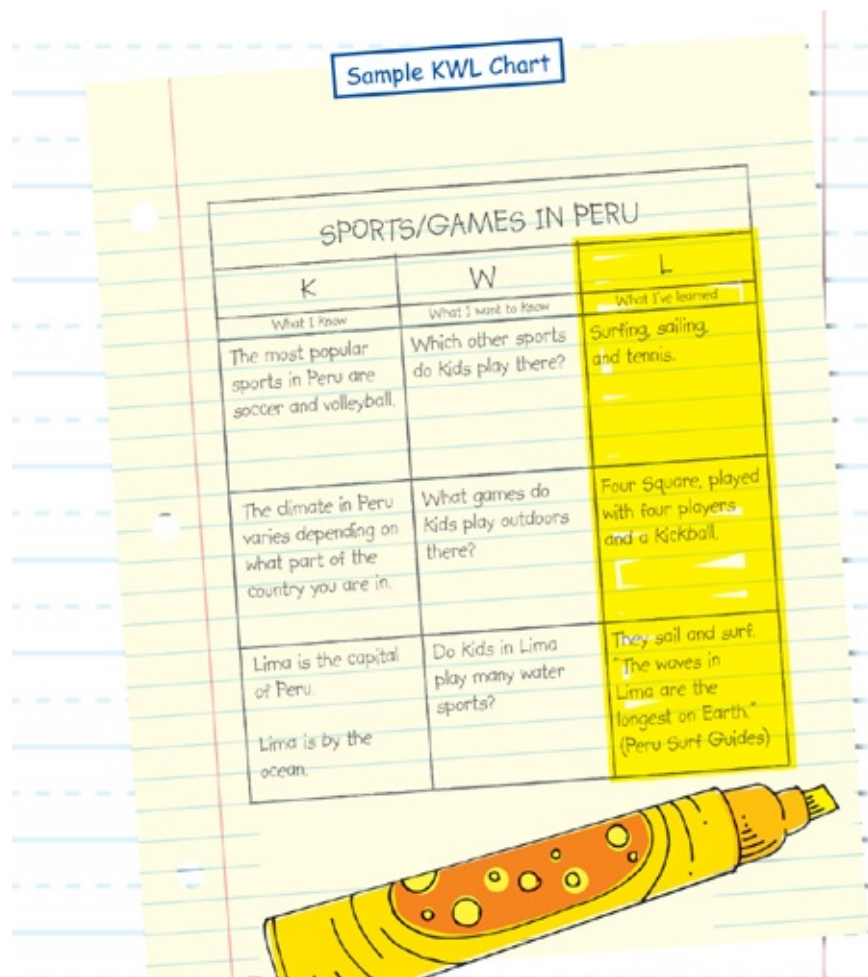 Sample KWL Chart
SPORTS/GAMES IN PERU
K
W
L
What I know
What I want to know
What I've learned
The most popular
sports in Peru are
soccer and volleyball.
Which other sports
do kids play there?
Surfing, sailing,
and tennis.
The climate in Peru
varies depending on
what part of the
country you are in.
What games do
kids play outdoors
there?
Four Square, played
with four players
and a kickball.
Lima is the capital
of Peru.
Lima is by the
ocean.
Do kids in Lima
play many water
sports?
They sail and surf.
"The waves in
Lima are the
longest on Earth."
(Peru Surf Guides)